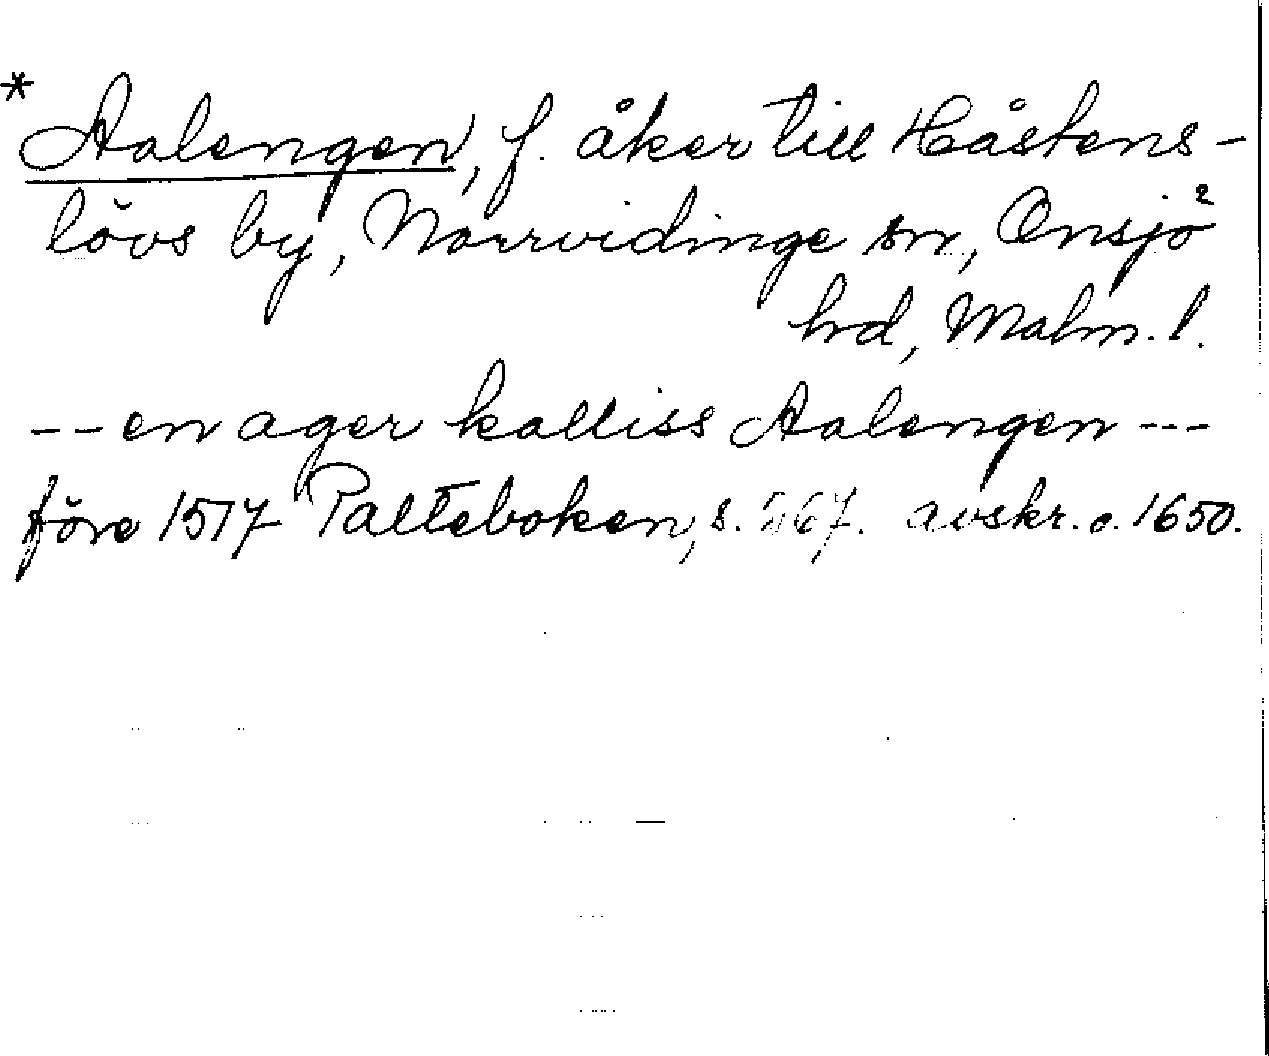 * Aalengen, f. åker till Håstens-
lövs by, Norrvidinge sn, Onsjö
hrd, Malm. l.
-- en ager kalliss Aalengen ---
före 1517 Palteboken, s. 567. avskr. o. 1650.